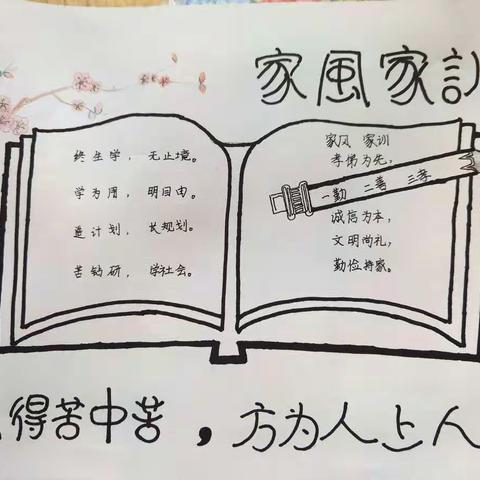 家風家訓
终生学，无止境。
学为用，明自由。
造计划，长规划。
苦钻研，学社会。
家风 家训
孝俤为先，
一勤 二善 三孝
诚信为本，
文明尚礼，
勤俭持家。
得苦中苦，方为人上人